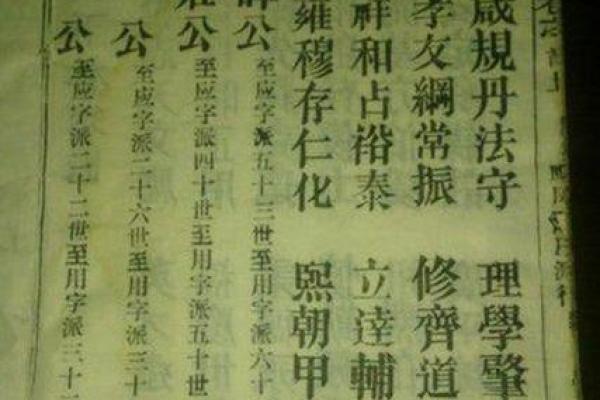 箴規丹法守 理學肇
孝友綱常振 修齊道
祥和占裕泰 立達輔
雍穆存仁化 熙朝甲
公 至应字派五十三世至用字派六十
公 至应字派四十世至用字派五十世
公 至应字派二十六世至用字派三十
公 至应字派二十二世至用字派三十一